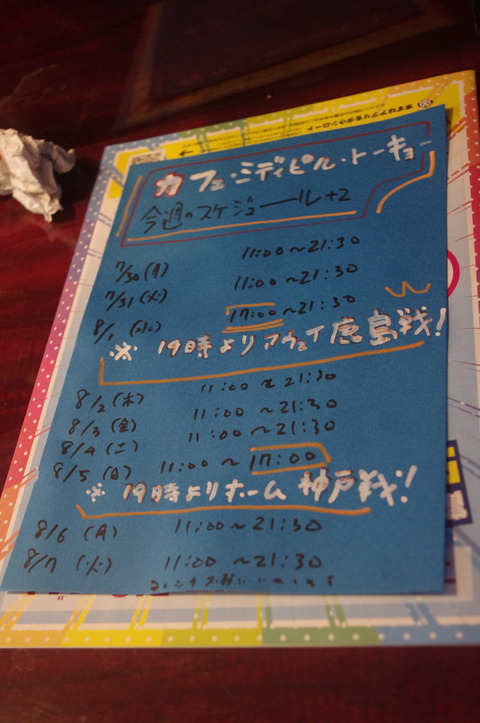 まずはアプリをダウンロード
カフェ・ミディピル・トーキョー
今週のスケジュール+2
7/30(月) 11:00~21:30
7/31(火) 11:00~21:30
8/1(水) 17:00~21:30
※ 19時よりアウェイ鹿島戦!
8/2(木) 11:00~21:30
8/3(金) 11:00~21:30
8/4(土) 11:00~21:30
8/5(日) 11:00~17:00
※ 19時よりホーム神戸戦!
8/6(月) 11:00~21:30
8/7(火) 11:00~21:30